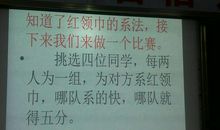 知道了红领巾的系法，接
下来我们来做一个比赛。
挑选四位同学，每两
人为一组，为对方系红领
巾，哪队系的快，哪队就
得五分。